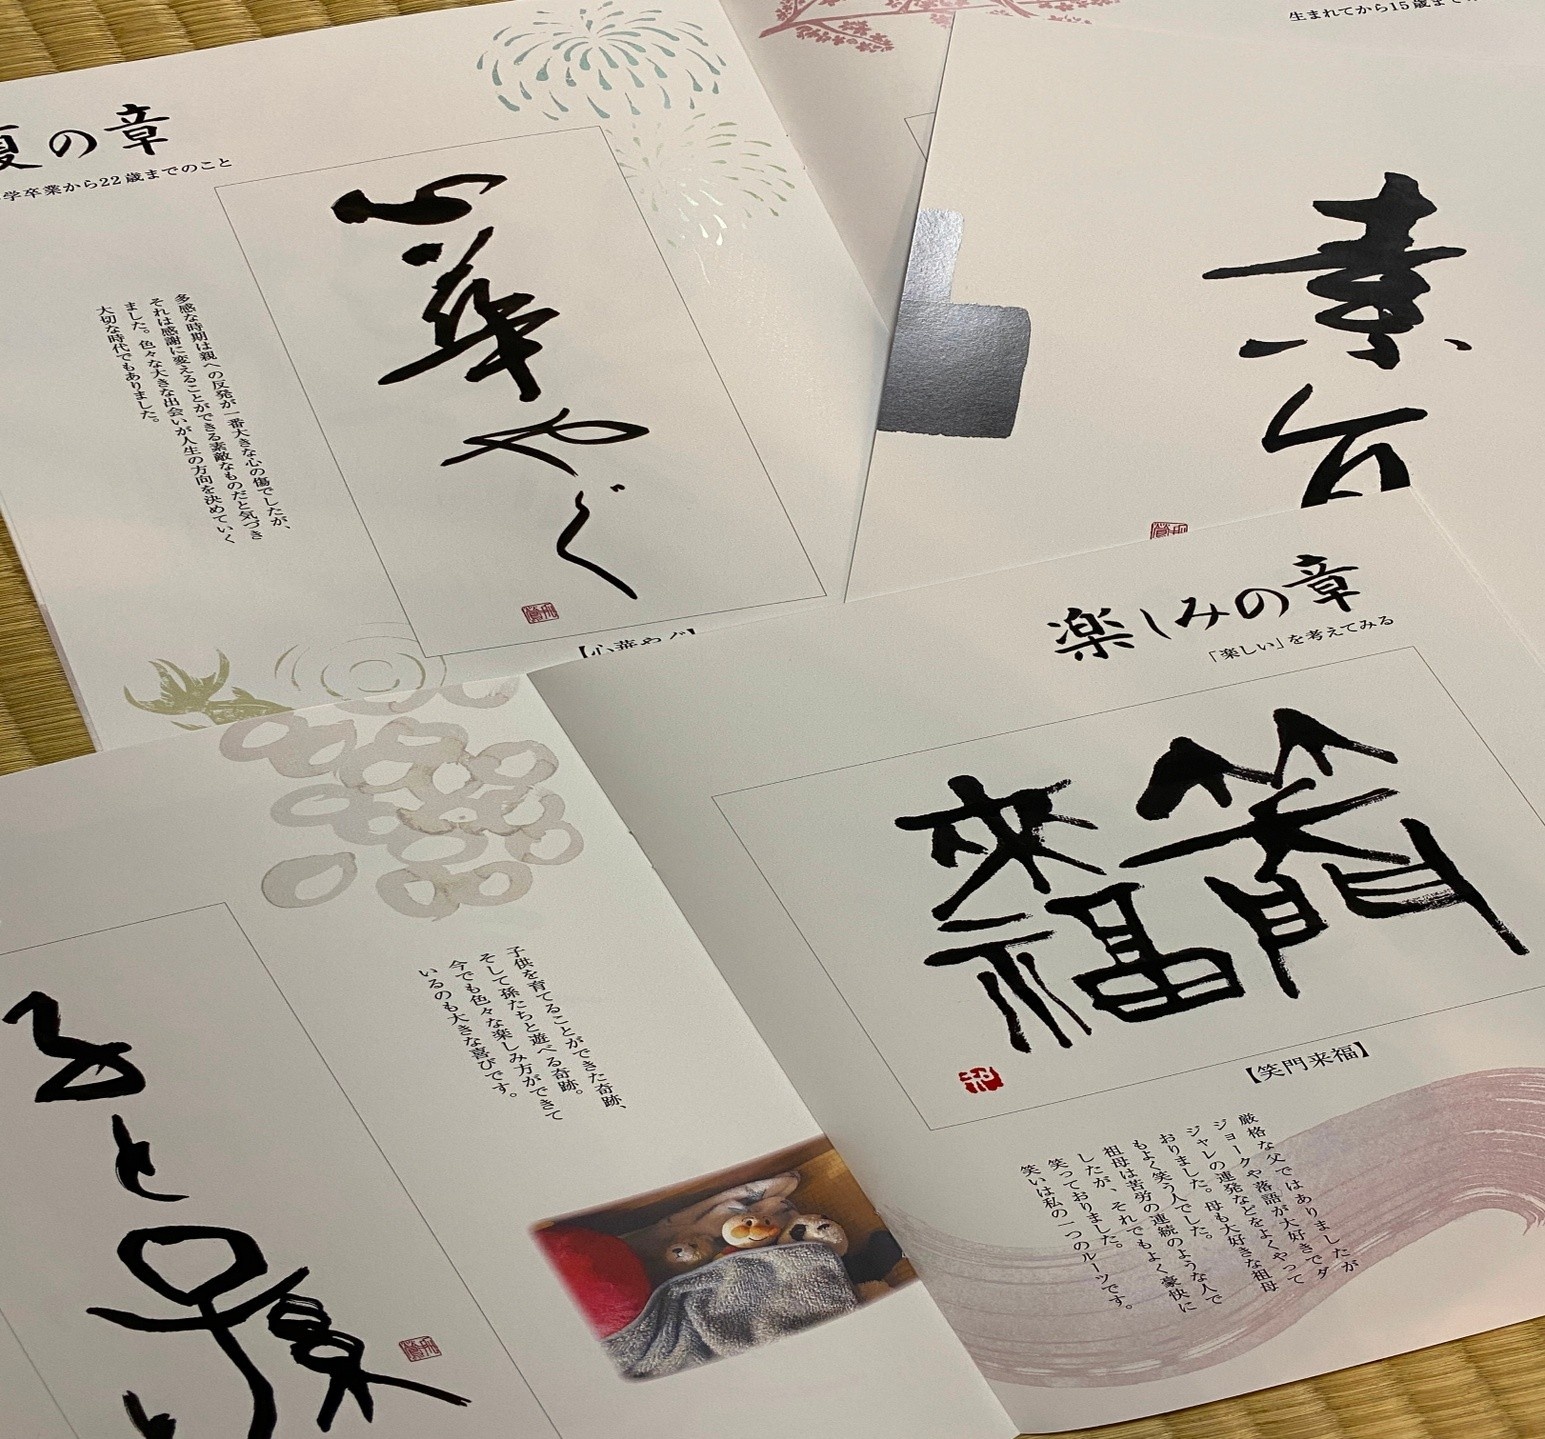 夏の章
学卒業から22歳までのこと
心華やぐ
多感な時期は親への反発が一番大きな心の傷でしたが、
それは感謝に変えることができる素敵なものだと気づき
ました。色々な大きな出会いが人生の方向を決めていく
大切な時代でもありました。
【心華やぐ】
生まれてから15歳まで
素
楽しみの章
「楽しい」を考えてみる
笑門
來福
【笑門来福】
厳格な父ではありましたが
ジョークや落語が大好きでダ
ジャレの連発などをよくやって
おりました。母も大好きな祖母
もよく笑う人でした。
祖母は苦労の連続のような人で
したが、それでもよく豪快に
笑っておりました。
笑いは私の一つのルーツです。
子供を育てることができた奇跡、
そして孫たちと遊べる奇跡。
今でも色々な楽しみ方ができて
いるのも大きな喜びです。
る と 孫